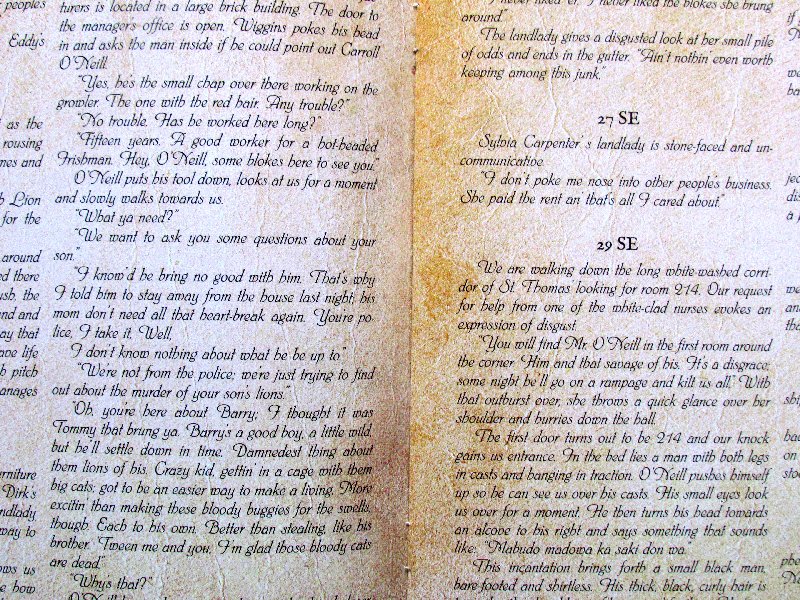 peoples
Eddy's
as the
rousing
mes and
Lion
for the
around
ed there
ush, the
and and
ay that
ave life
h pitch
anages
urniture
Dirk's
ndlady
way to
ows us
e how
turers is located in a large brick building. The door to
the managers office is open. Wiggins pokes his head
in and asks the man inside if he could point out Carroll
O'Neill.
"Yes, he's the small chap over there working on the
growler. The one with the red hair. Any trouble?"
"No trouble. Has he worked here long?"
"Fifteen years. A good worker for a hot-headed
Irishman. Hey, O'Neill, some blokes here to see you."
O'Neill puts his tool down, looks at us for a moment
and slowly walks towards us.
"What ya need?"
"We want to ask you some questions about your
son."
"I know'd he bring no good with him. That's why
I told him to stay away from the house last night; his
mom don't need all that heart-break again. You're po-
lice, I take it. Well,
I don't know nothing about what he be up to."
"We're not from the police; we're just trying to find
out about the murder of your son's lions."
"Oh, you're here about Barry; I thought it was
Tommy that brung ya. Barry's a good boy, a little wild,
but he'll settle down in time. Damnedest thing about
them lions of his. Crazy kid, gettin' in a cage with them
big cats; got to be an easier way to make a living. More
excitin than making these bloody buggies for the swells,
though. Each to his own. Better than stealing, like his
brother. 'Tween me and you, I'm glad those bloody cats
are dead."
"Why's that?"
I never liked er. I never liked the blokes she brung
around."
The landlady gives a disgusted look at her small pile
of odds and ends in the gutter. "Ain't nothin even worth
keeping among this junk."
27 SE
Sylvia Carpenter's landlady is stone-faced and un-
communicative.
"I don't poke me nose into other people's business.
She paid the rent an that's all I cared about."
29 SE
We are walking down the long white-washed corri-
dor of St. Thomas looking for room 214. Our request
for help from one of the white-clad nurses evokes an
expression of disgust.
"You will find Mr. O'Neill in the first room around
the corner. Him and that savage of his. It's a disgrace;
some night he'll go on a rampage and kilt us all." With
that outburst over, she throws a quick glance over her
shoulder and hurries down the hall.
The first door turns out to be 214 and our knock
gains us entrance. In the bed lies a man with both legs
in casts and hanging in traction. O'Neill pushes himself
up so he can see us over his casts. His small eyes look
us over for a moment. He then turns his head towards
an alcove to his right and says something that sounds
like: "Mabudo madowa ka saki don wa."
This incantation brings forth a small black man,
bare-footed and shirtless. His thick, black, curly hair is